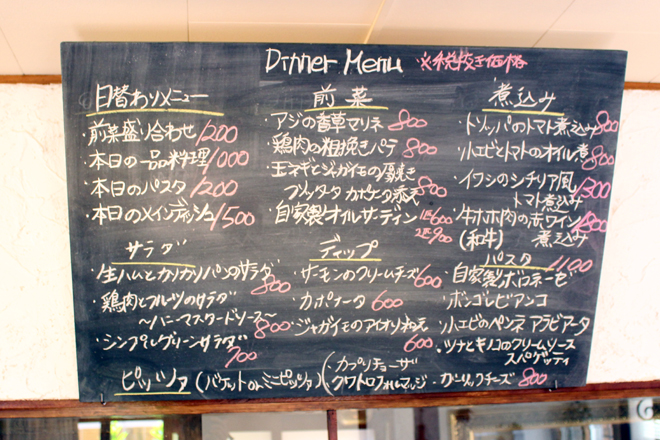 Dinner Menu ※税抜き価格
日替わりメニュー
・前菜盛り合わせ 1200
・本日の一品料理 1000
・本日のパスタ 1200
・本日のメインディッシュ 1500
前菜
・アジの香草マリネ 800
・鶏肉の粗挽きパテ 800
・玉ネギとジャガイモの
フリッタタ カポナータ添え 800
・自家製オイルサーディン 1匹600
2匹900
煮込み
・トリッパのトマト煮込み 800
・小エビとトマトのオイル煮 800
・イワシのシチリア風
トマト煮込み 1300
・牛ホホ肉の赤ワイン 1800
(和牛) 煮込み
サラダ
・生ハムとカリカリパンのサラダ
800
・鶏肉とフルーツのサラダ
〜ハニーマスタードソース〜 800
・シンプルグリーンサラダ
700
ディップ
・サーモンのクリームチーズ 600
・カポナータ 600
・ジャガイモのアイオリ和え
600
パスタ 1100
・自家製ボロネーゼ
・ボンゴレビアンコ
・小エビのペンネ アラビアータ
・ツナとキノコのクリームソース
スパゲッティ
ピッツァ (バゲットorミニピッツァ)
・カプリチョーザ
・クワトロフォルマッジ ・ガーリックチーズ 800